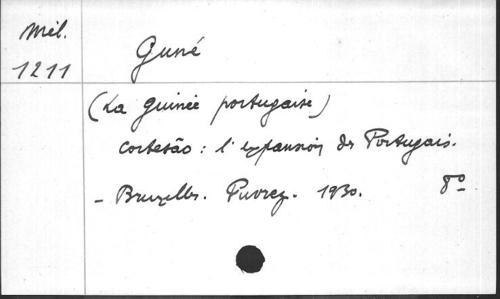 Mél.
1211
Guné
(La Guinée portugaise)
Cortesão : l'expansion des Portugais.
- Bruxelles. Puvrez. 1930. 8º